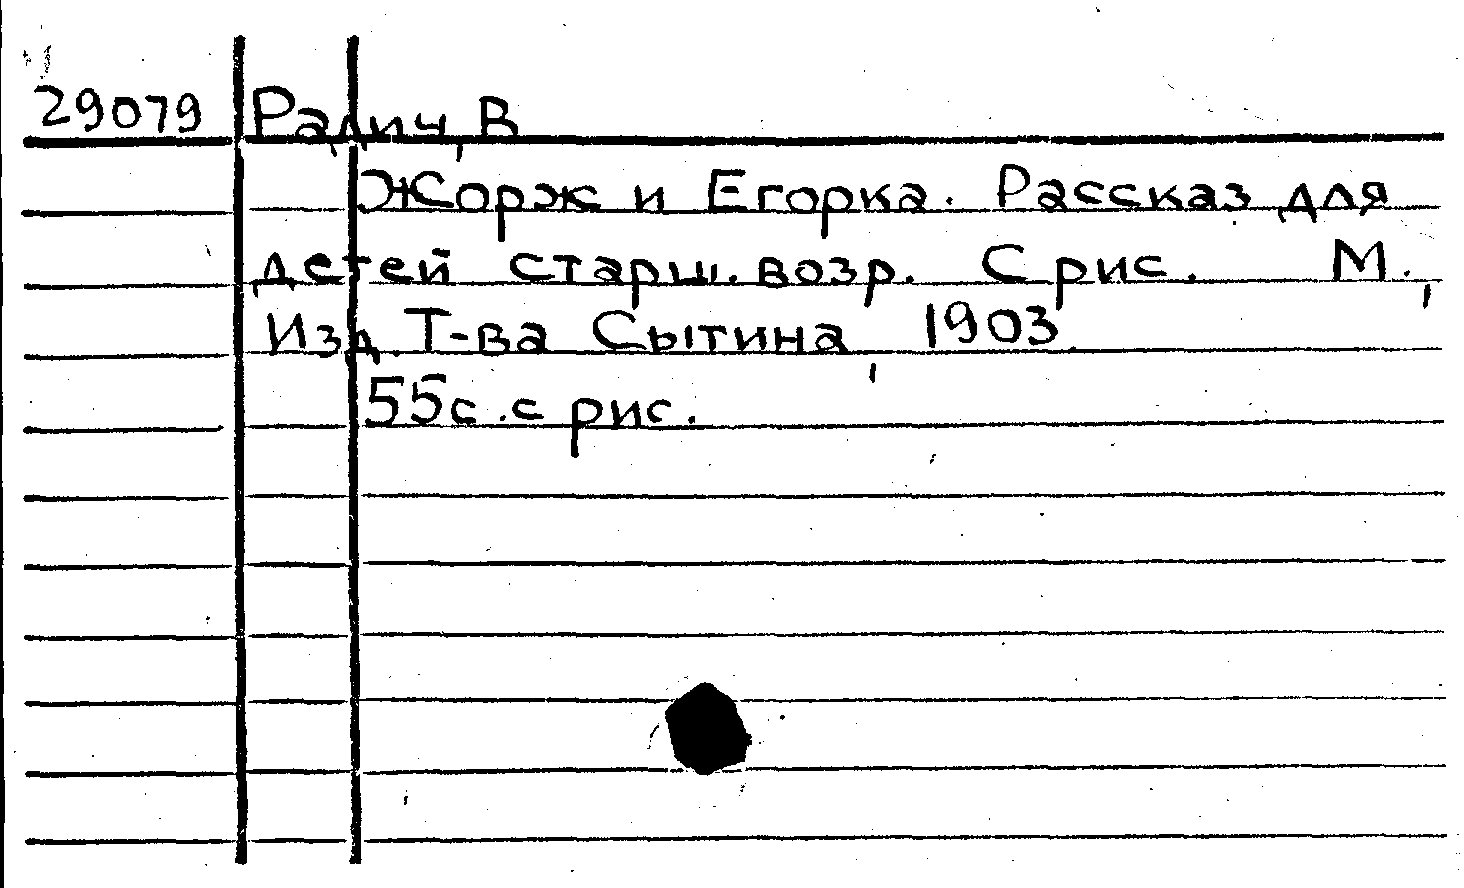 29079 Радич, В
Жорж и Егорка. Рассказ для
детей старш. возр. С рис. М.,
Изд. Т-ва Сытина, 1903.
55с. с рис.